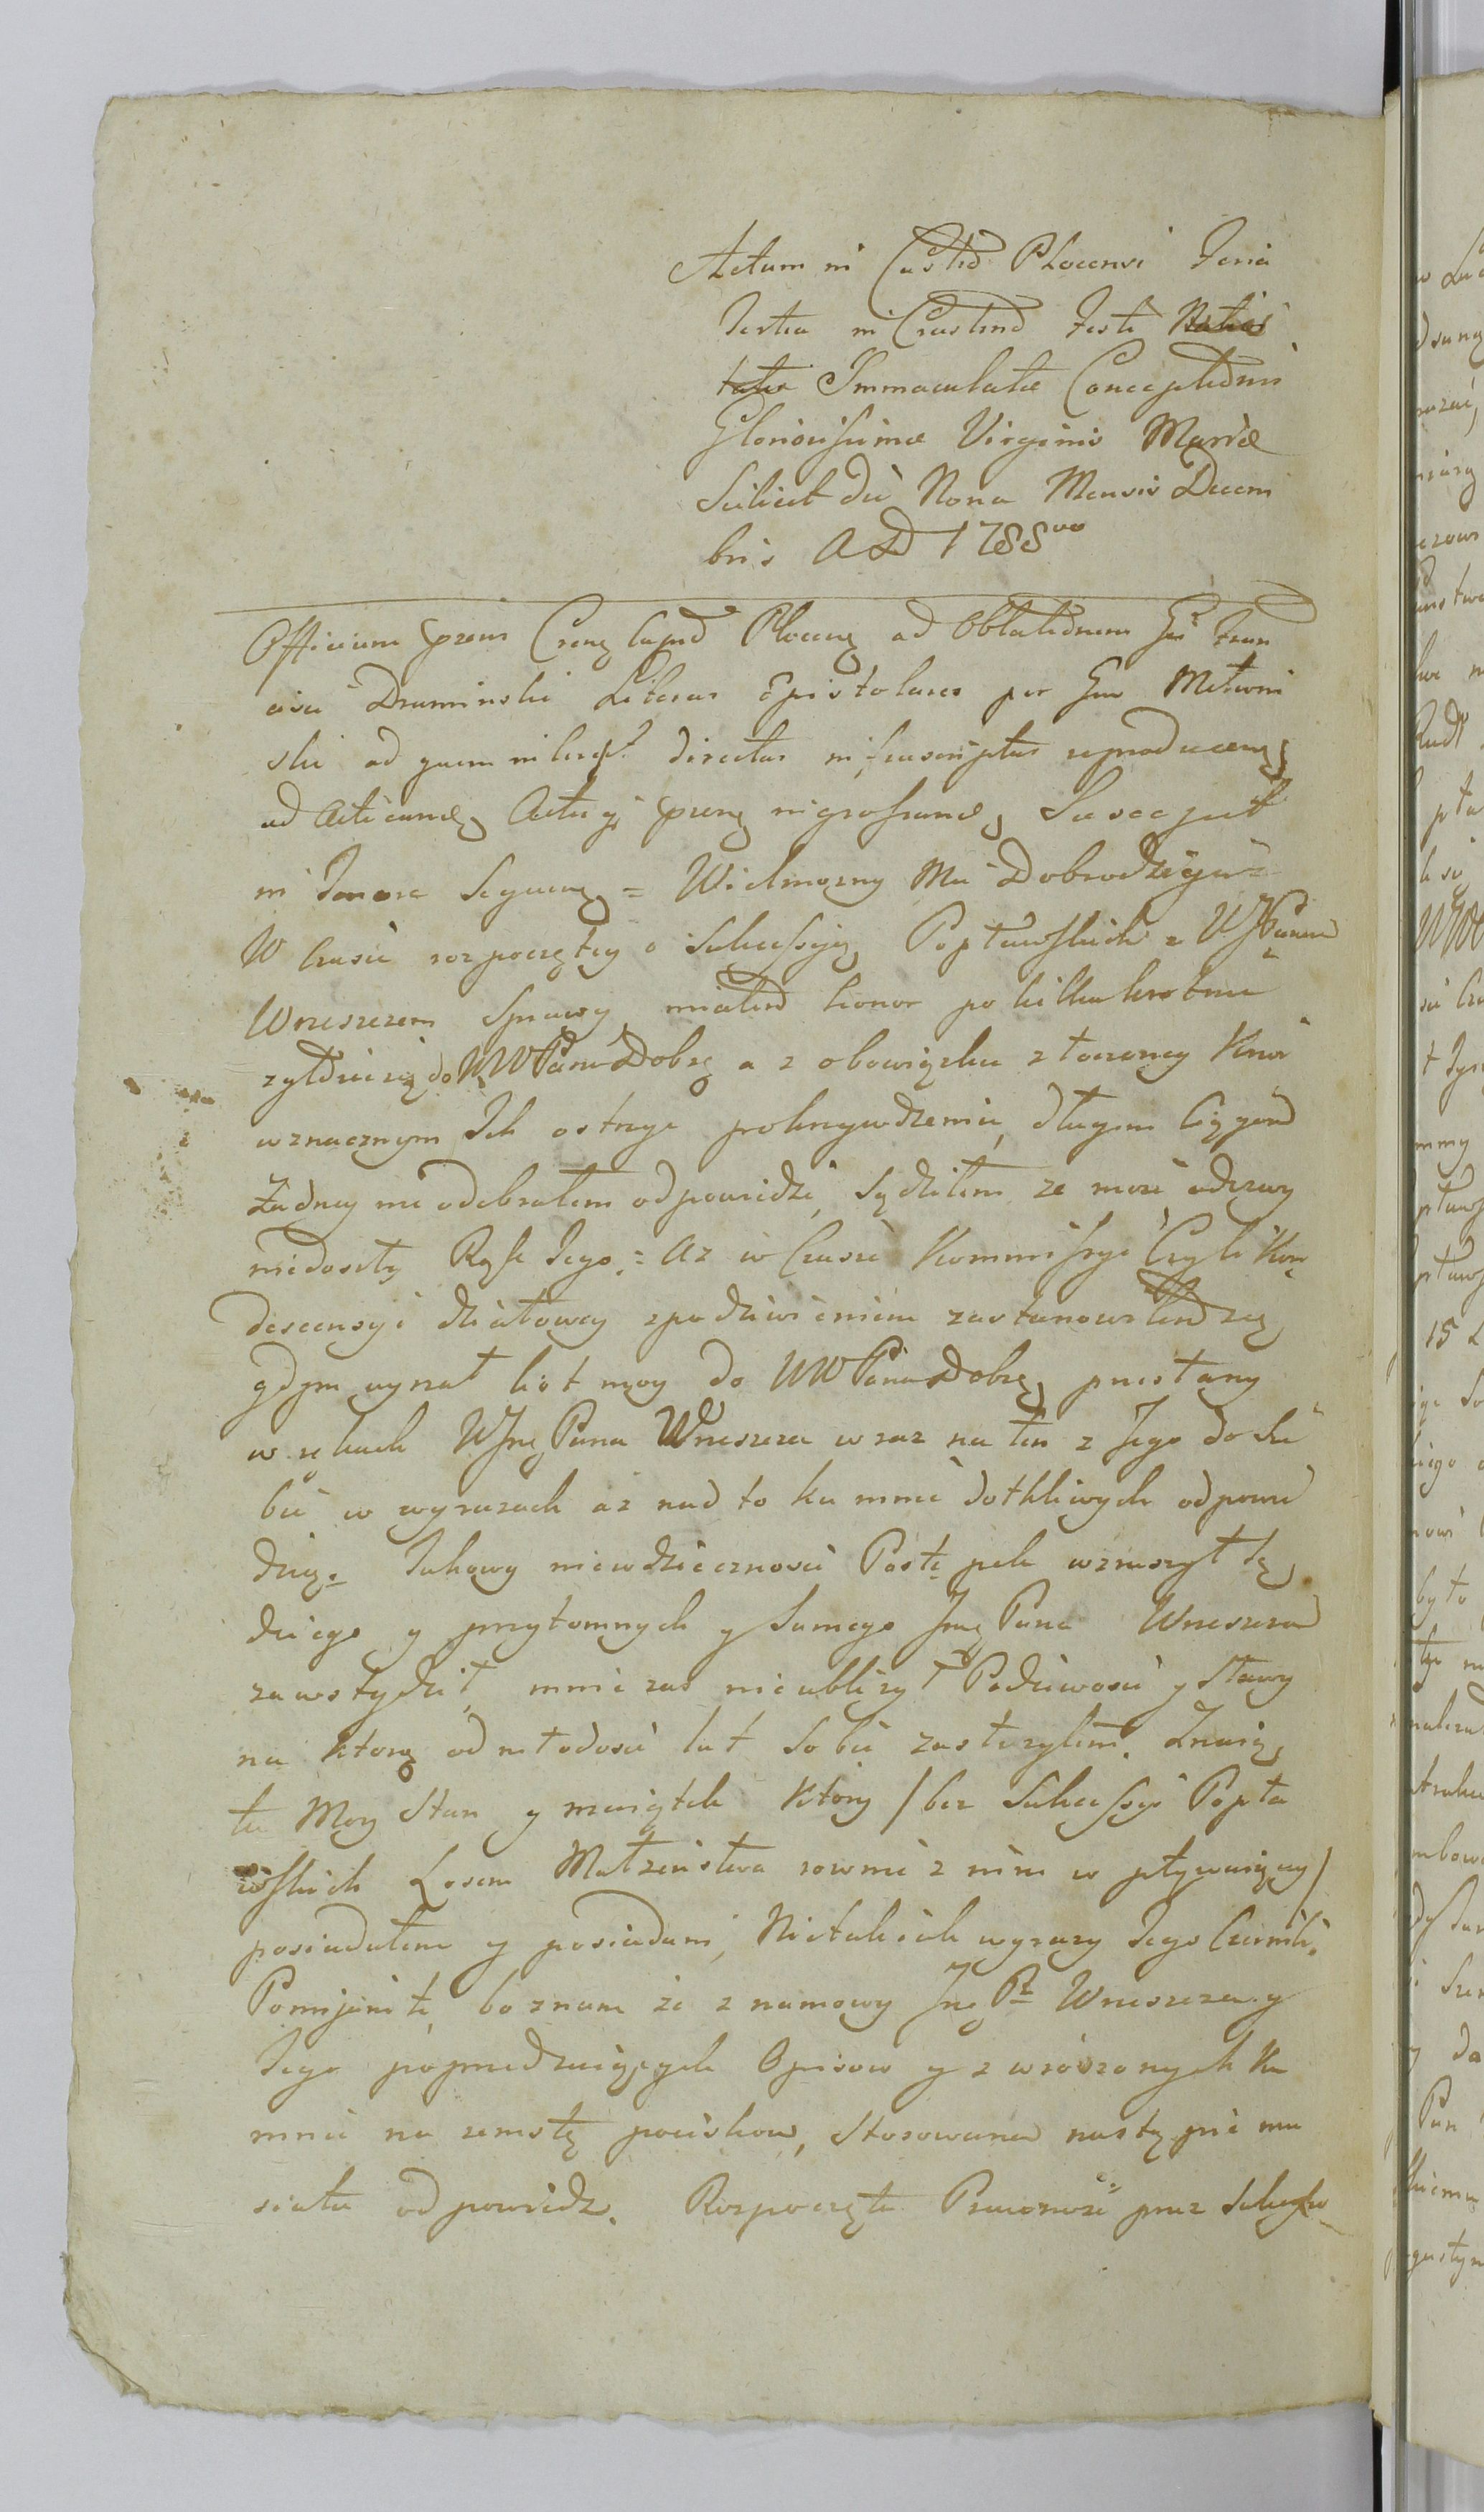 Actum in Castro Plocensi Feria
Tertia in Crastino Festi Nativi
tatis Immaculatae Conceptionis
Gloriosissimae Virginis Mariae
Scilicet die Nona Mensis Decem
bris AD 1788vo
Officium praesens Plocen ad Oblationem Gsi Fran
cisci Druminski Literas Epistolares per
ski ad quem directas infrascriptas reproducen
ad acticand Actis praesen ingrossand, Suscepit
in Tenore Sequen = Wielmozny Mci Dobrodzieju =
W Czasie rozpoczętey o Sukcessyę Popławskich z WJPanem
Wneszerem Sprawy, miałem honor po kilkakrotnie
do WWPana Dobrz a z obowiązku złączoney Krwi
w znacznym Ich ostrzge pokrzywdzeniu, długim ciągiem
Żadney nie odebrałem odpowiedzi, Sądziłem ze moie odezwy
niedoszły Rąk Jego = Az w Czasie Kommissyi Czyli Kon
descensyi działowey zpodziwieniem zastanowiłem się,
gdym uyrzał list moy do WWPana Dobrz, przesłany
w rękach WJmę Pana Wneszera w raz na ten z Jego do Sie
bie w wyrazach az nad to ku mnie dotkliwych odpowie
dzią. Takowy niewdzieczności Postępek wzruszył Sę
dziego y przytomnych y Samego Jmę Pana Wneszera
zawstydził, mnie zas nieubliżył Podciwości y Sławy
na ktorą od młodości lat Sobie zasłużyłem. Znaią,
tu Moy Stan y maiątek Ktory / bez Sukcessyi Popła
wskich Losem Małżeństwa rownie z nim w pływaiący /
posiadałem y posiadam, Nietakich wyrazy Jego Czernili.
Pomijam to, bo znam że z namowy Jmę Pa Wneszera y
Jego poprzedzaiących Opisow y zwróconych Ku
mnie na zemstę pocisków, Stosowana nastąpić mu
siała odpowiedz. Rozpoczęta Prawność przez